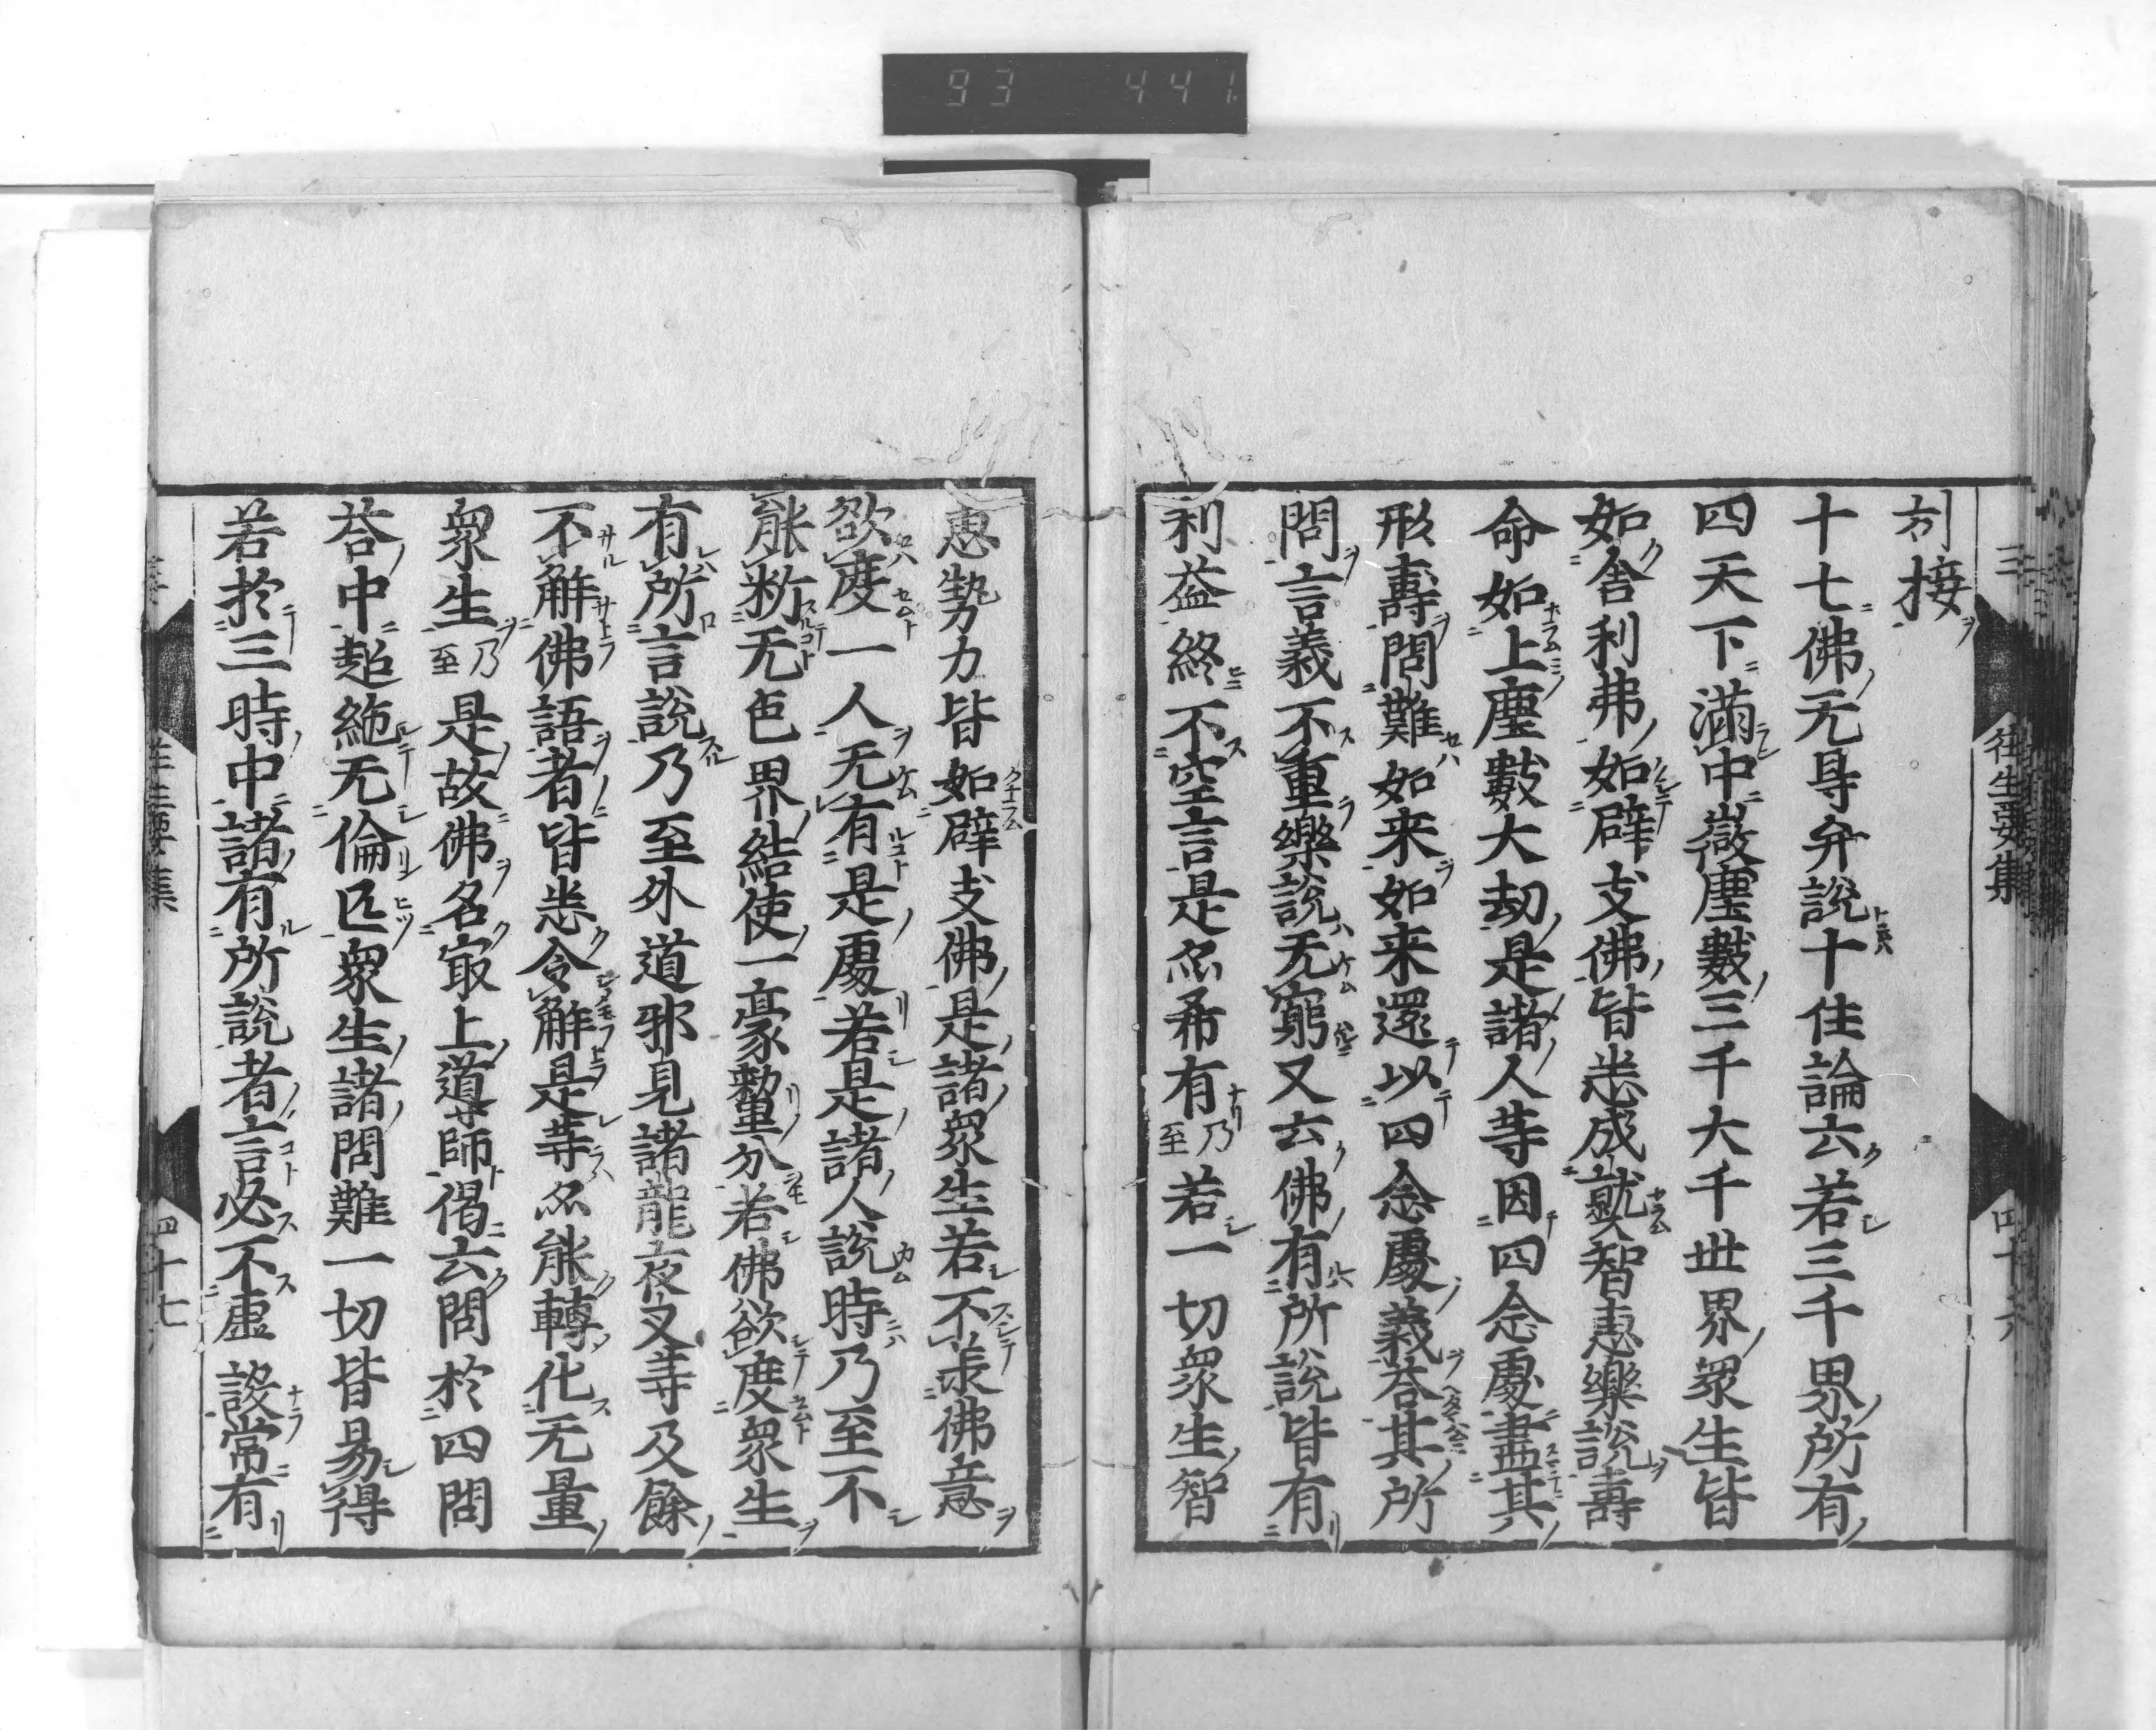 93 441
引接
十七佛无㝵弁說十住論云若三千界所有
四天下滿中微塵數三千大千世界衆生皆
如舍利弗如辟支佛皆悉成就智惠樂說壽
命如上塵數大劫是諸人等因四念處盡其
形壽問難如来如来還以四念處義荅其所
問言義不重樂說无窮又云佛有所說皆有
利益終不空言是亦希有乃至若一切衆生智
往生要集
惠勢力皆如辟支佛是諸衆生若不承佛意
欲度一人无有是處若是諸人說時乃至不
能斷无色界結使一豪氂分若佛欲度衆生
有所言說乃至外道邪見諸龍夜叉等及餘
不解佛語者皆悉令解是等亦能轉化无量
衆生乃至是故佛名㝡上導師偈云問於四問
荅中超絶无倫匹衆生諸問難一切皆易得
若於三時中諸有所說者言必不虛設常有
四十七